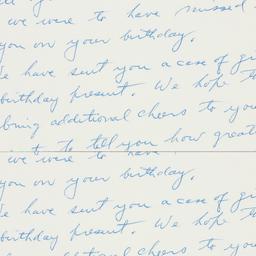 we were to have missed
you on your birthday.
have sent you a case of
birthday present. We hope to
bring additional cheers to you
to tell you how great
we were to have
you on your birthday.
have sent you a case of
birthday present. We hope to
additional cheers to you